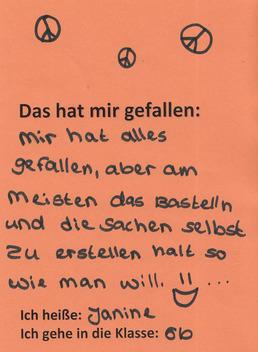 Das hat mir gefallen:
mir hat alles
gefallen, aber am
meisten das Basteln
und die Sachen selbst
zu erstellen halt so
wie man will. ...
Ich heiße: Janine
Ich gehe in die Klasse: 6b